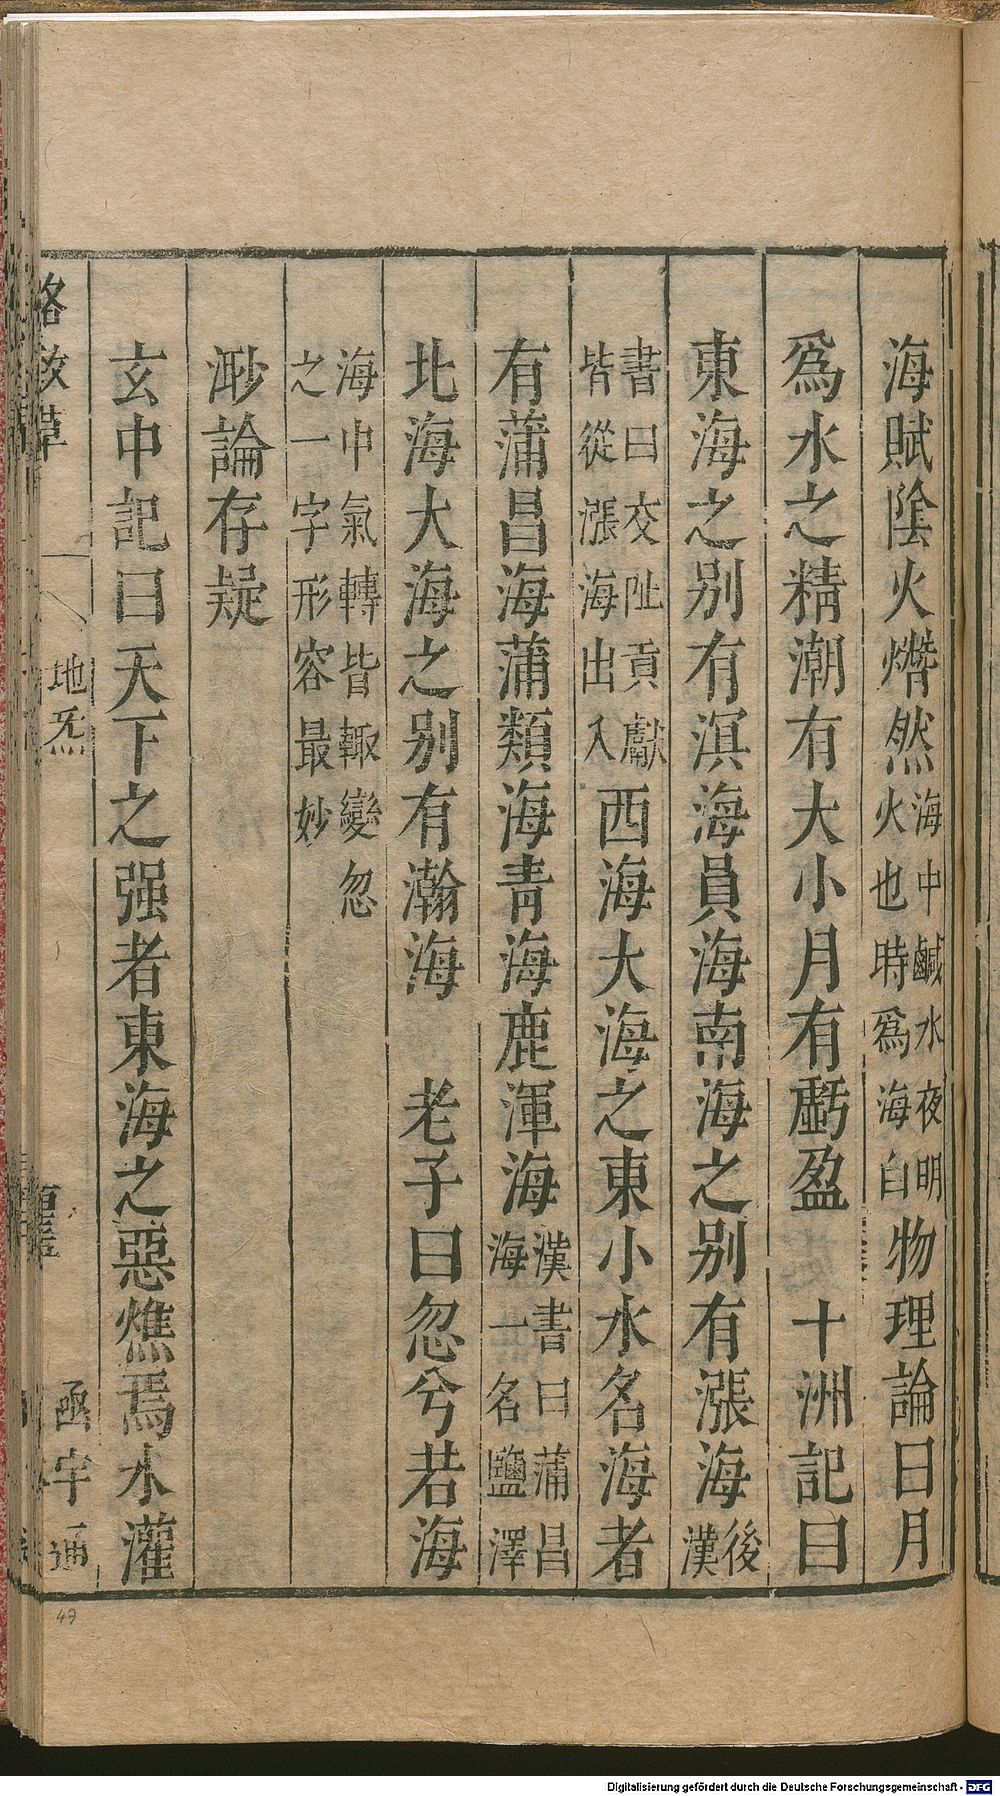 海賦陰火熸然海中鹹水夜明火也時爲海白物理論曰月
爲水之精潮有大小月有虧盈　十洲記曰
東海之别有溟海員海南海之别有漲海後漢
書曰交阯貢獻皆從漲海出入西海大海之東小水名海者
有蒲昌海蒲類海青海鹿渾海漢書曰蒲昌海一名鹽澤
北海大海之别有瀚海　老子曰忽兮若海
海中氣轉皆輙變忽之一字形容最妙
渺論存疑
玄中記曰天下之强者東海之惡燋焉水灌
格致草
地
函宇通
47
Digitalisierung gefördert durch die Deutsche Forschungsgemeinschaft - DFG